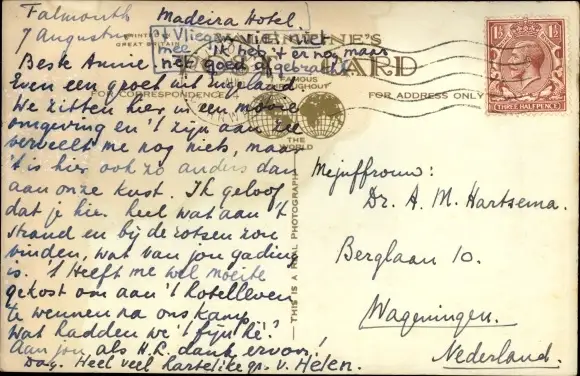 Falmouth Madeira Hotel
7 Augustus
Vlieg niet
mee. Ik heb 't er nog maar
net goed afgebracht
PRINTED IN
GREAT BRITAIN
VALENTINE'S
POST CARD
FAMOUS
THROUGHOUT
THE
WORLD
FOR CORRESPONDENCE
FOR ADDRESS ONLY
THIS IS A REAL PHOTOGRAPH
1½ 1½
THREE HALFPENCE
Beste Annie.
Even een groet uit Engeland
We zitten hier in een mooie
omgeving en 't zijn aan zee
verveelt me nog niets, maar
't is hier ook zo anders dan
aan onze kust. Ik geloof
dat je hier heel wat aan 't
strand en bij de rotsen zou
vinden, wat van jou gading
is. 't Heeft me wel moeite
gekost om aan 't hotelleven
te wennen na ons kamp
Wat hadden we 't fijn hè?
Aan jou als H.L. dank ervoor!
Dag. Heel veel hartelijke gr. v. Helen.
Mejuffrouw:
Dr. A. M. Hartsema.
Berglaan 10.
Wageningen.
Nederland.